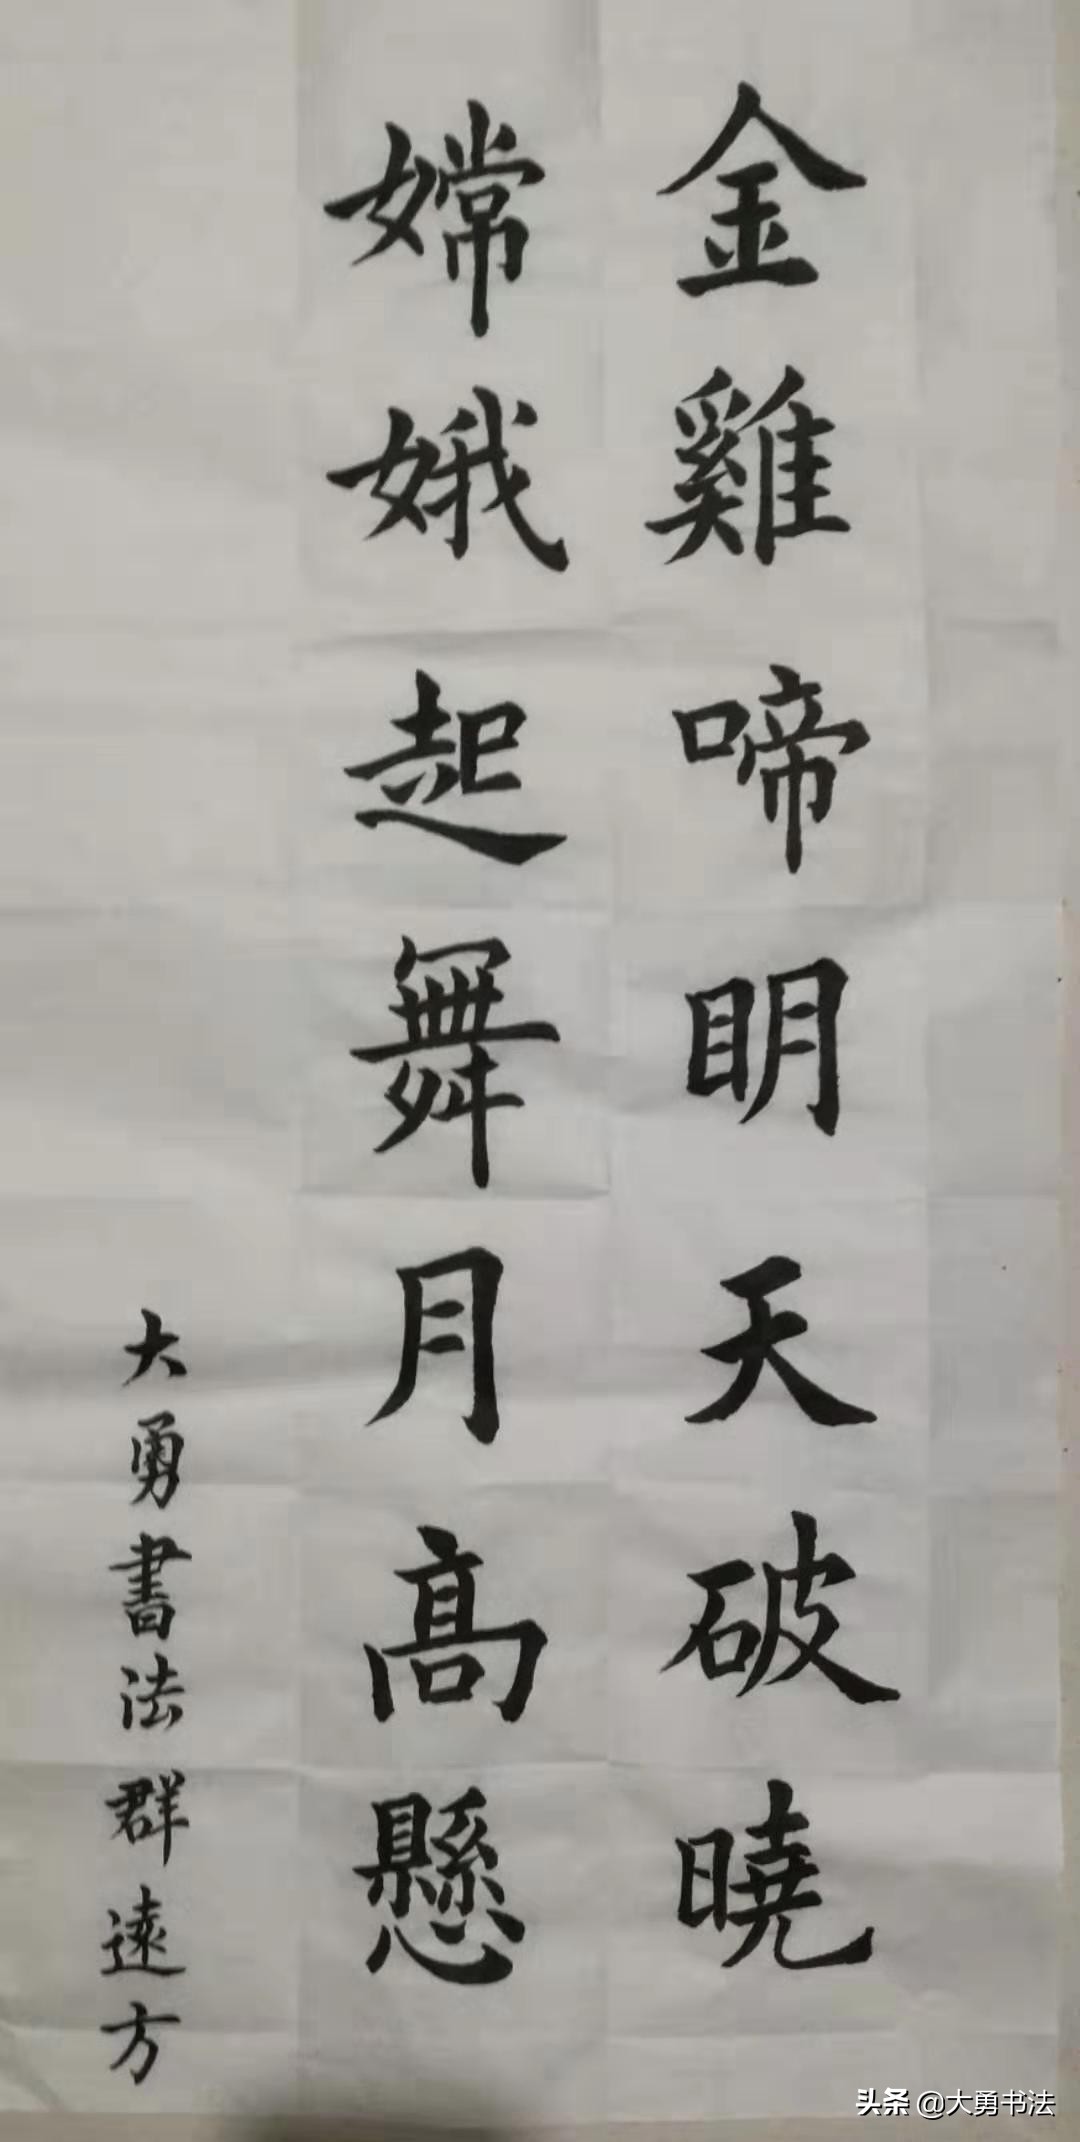 金雞啼明天破曉
嫦娥起舞月高懸
大勇書法群遠方
头条 @大勇书法